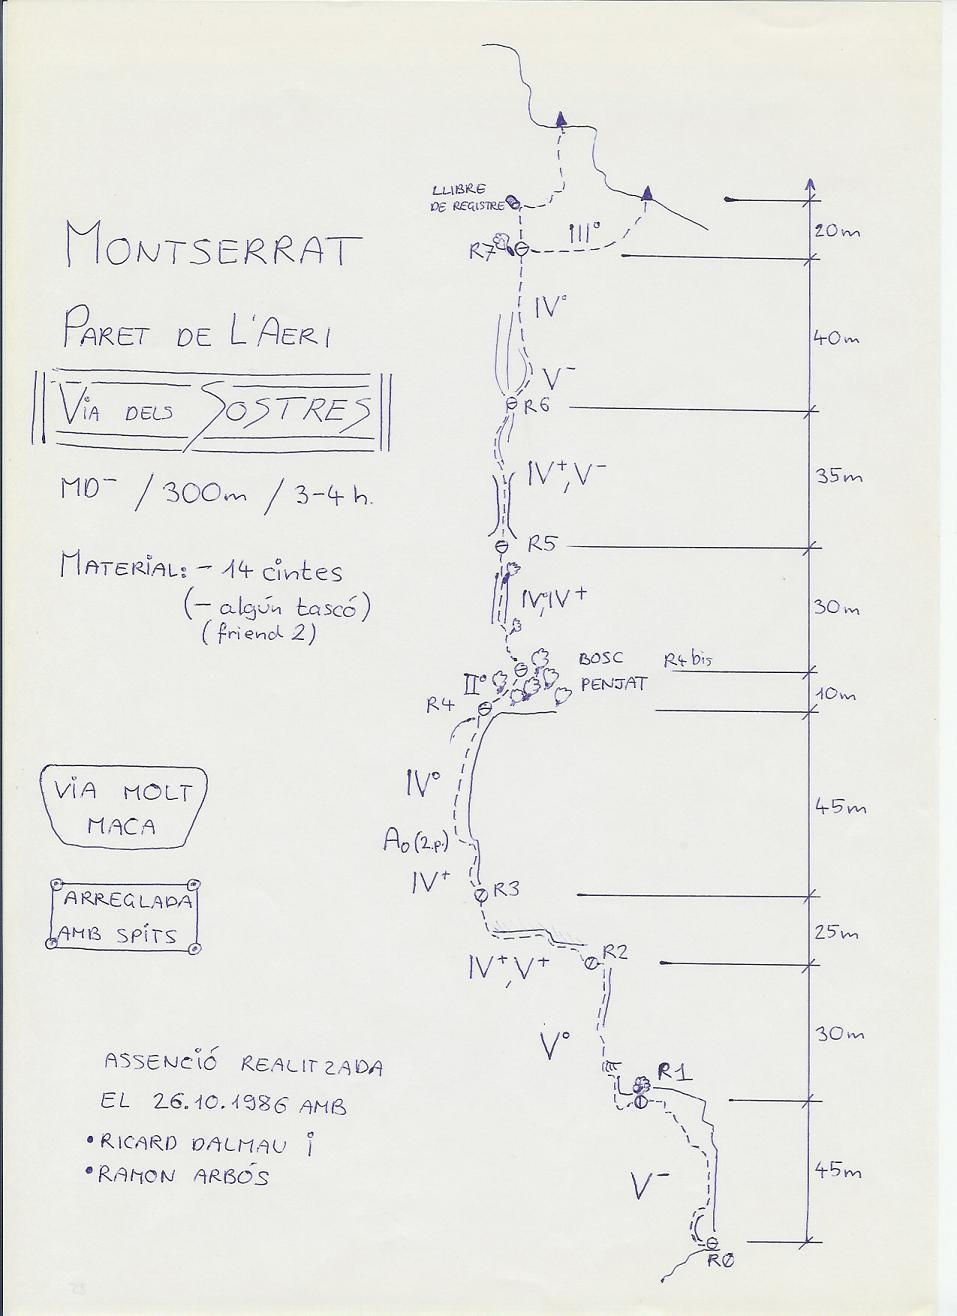 MONTSERRAT
PARET DE L'AERI
VIA DELS SOSTRES
MD⁻ / 300m / 3-4 h.
MATERIAL: - 14 cintes
(- algún tascó)
(friend 2)
VIA MOLT
MACA
ARREGLADA
AMB SPITS
ASSENCIÓ REALITZADA
EL 26.10.1986 AMB
•RICARD DALMAU i
•RAMON ARBÓS
LLIBRE
DE REGISTRE
III°
R7
IV°
V⁻
R6
IV⁺, V⁻
R5
IV, IV⁺
BOSC
PENJAT
R4 bis
II°
R4
IV°
A0 (2.p.)
IV⁺
R3
R2
IV⁺, V⁺
V°
R1
V⁻
R0
20m
40m
35m
30m
10m
45m
25m
30m
45m